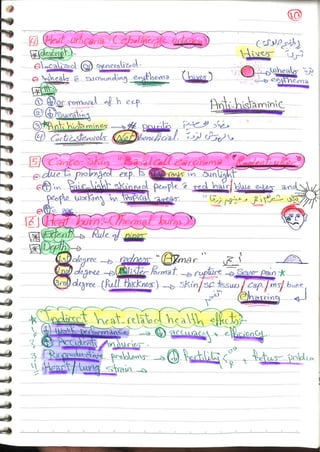 10
4) Heat urticaria (cholinergic urticaria)
* descript Hives
localized or generalized.
wheals & surrounding erythema (hives)
wheals
erythema
* ttt
① removal of h exp.
② sweating Antihistaminic
③ * Anti histamines → pruritis
④ Corticosteroids Not beneficial.
5) Cancer skin "Basal cell carcinoma"
due to prolonged exp. to UV rays in sunlight
in Fair/light skinned people & red hair, blue eyes and
people working in tropical areas
6) Heat burn: (Thermal burn)
* Extent → Rule of nines
* Depth →
1st degree → redness "
2nd degree → Blister format. → rupture → Sever pain *
3rd degree (full thickness) → skin/sc tissue/cap./ms/bone
Charring
* Indirect heat-related health effects:-
1 work performance → accuracy + efficiency.
2 Accident injuries.
3 Reproductive problems → fertility + fetus problem
4 Heart/lung strain →